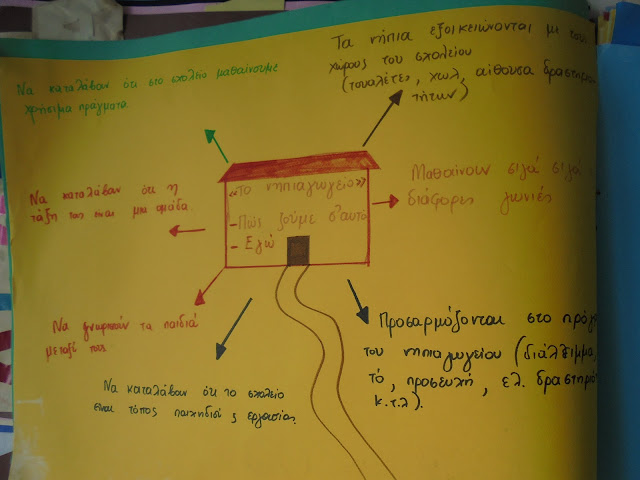 Να καταλάβουν ότι στο σχολείο μαθαίνουμε
χρήσιμα πράγματα.
Τα νήπια εξοικειώνονται με τους
χώρους του σχολείου
(τουαλέτες, χωλ, αίθουσα δραστηριο
τήτων)
Να καταλάβουν ότι η
τάξη τους είναι μια ομάδα.
«Το νηπιαγωγείο»
-Πώς ζούμε σ'αυτό
- Εγώ
Μαθαίνουν σιγά σιγά
διάφορες γωνιές
Να γνωριστούν τα παιδιά
μεταξύ τους.
Προσαρμόζονται στο πρόγ
του νηπιαγωγείου (διάλειμμα,
τό, προσευχή, ελ. δραστηριό
κ.τ.λ).
Να καταλάβουν ότι το σχολείο
είναι τόπος παιχνιδιού ς εργασίας.